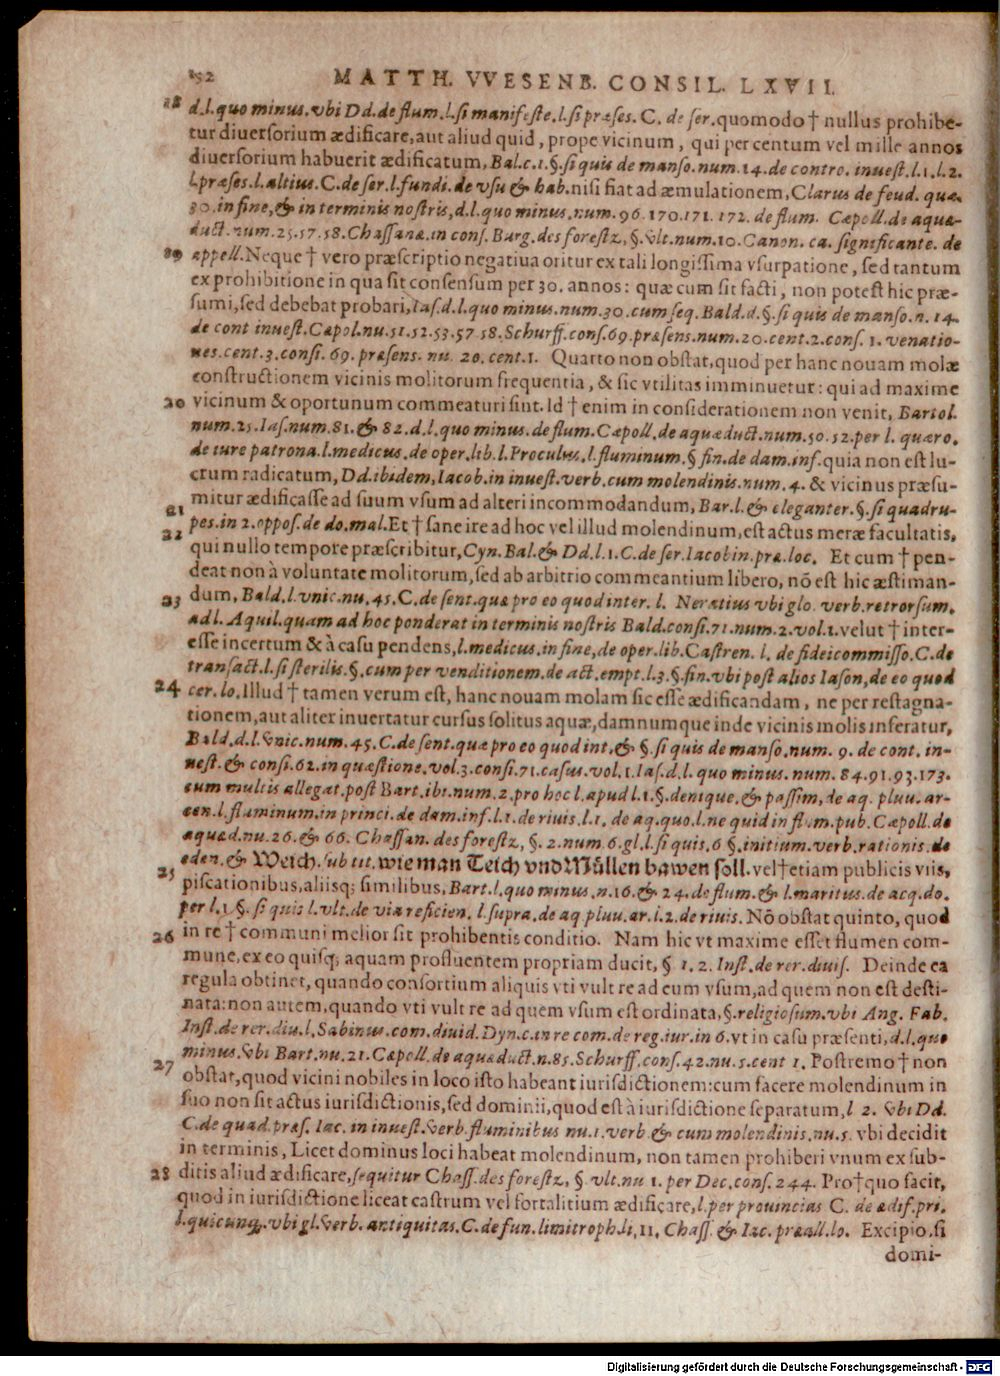 192 MATTH. VVESENB. CONSIL. LXVII.
18 d.l. quo minus. vbi Dd. de flum. l. si manifeste. l. si præses. C. de ser. quomodo † nullus prohibe-
tur diuersorium ædificare, aut aliud quid, prope vicinum, qui per centum vel mille annos
diuersorium habuerit ædificatum, Bal. c. 1. §. si quis de manso. num. 14. de contro. inuest. l. 1. l. 2.
l. præses. l. altius. C. de ser. l. fundi. de vsu & hab. nisi fiat ad æmulationem, Clarus de feud. quæ.
30. in fine, & in terminis nostris, d. l. quo minus. num. 96. 170. 171. 172. de flum. Cæpoll. de aquæ-
duct. num. 25. 57. 58. Chassanæ. in cons. Burg. des forestz, §. vlt. num. 10. Canon. ca. significante. de
19 appell. Neque † vero præscriptio negatiua oritur ex tali longissima vsurpatione, sed tantum
ex prohibitione in qua sit consensum per 30. annos: quæ cum sit facti, non potest hic præ-
sumi, sed debebat probari, Ias. d. l. quo minus. num. 30. cum seq. Bald. d. §. si quis de manso. n. 14.
de cont inuest. Cæpol. nu. 51. 52. 53. 57 58. Schurff. cons. 69. præsens. num. 20. cent. 2. cons. 1. venatio-
nes. cent. 3. consi. 69. præsens. nu. 20. cent. 1. Quarto non obstat, quod per hanc nouam molæ
constructionem vicinis molitorum frequentia, & sic vtilitas imminuetur: qui ad maxime
20 vicinum & oportunum commeaturi sint. Id † enim in considerationem non venit, Bartol.
num. 25. Ias. num. 81. & 82. d. l. quo minus. de flum. Cæpoll. de aquæduct. num. 50. 52. per l. quæro.
de iure patrona. l. medicus. de oper. lib. l. Proculus. l. fluminum. § fin. de dam. inf. quia non est lu-
crum radicatum, Dd. ibidem, Iacob. in inuest. verb. cum molendinis. num. 4. & vicinus præsu-
mitur ædificasse ad suum vsum ad alteri incommodandum, Bar. l. & eleganter. §. si quadru-
21 pes. in 2. oppos. de do. mal. Et † sane ire ad hoc vel illud molendinum, est actus meræ facultatis,
22 qui nullo tempore præscribitur, Cyn. Bal. & Dd. l. 1. C. de ser. Iacob in. præ. loc. Et cum † pen-
deat non à voluntate molitorum, sed ab arbitrio commeantium libero, nō est hic æstiman-
23 dum, Bald. l. vnic. nu. 45. C. de sent. quæ pro eo quod inter. l. Neratius vbi glo. verb. retrorsum.
ad l. Aquil. quam ad hoc ponderat in terminis nostris Bald. consi. 71. num. 2. vol. 1. velut † inter-
esse incertum & à casu pendens, l. medicus. in fine, de oper. lib. Castren. l. de fideicommisso. C. de
transact. l. si sterilis. §. cum per venditionem. de act. empt. l. 3. §. fin. vbi post alios Iason, de eo quod
24 cer. lo. Illud † tamen verum est, hanc nouam molam sic esse ædificandam, ne per restagna-
tionem, aut aliter inuertatur cursus solitus aquæ, damnumque inde vicinis molis inferatur,
Bald. d. l. vnic. num. 45. C. de sent. quæ pro eo quod int, & §. si quis de manso. num. 9. de cont. in-
uest. & consi. 62. in quæstione. vol. 3. consi. 71. casus. vol. 1. Ias. d. l. quo minus. num. 84. 91. 93. 173.
cum multis allegat. post Bart. ibi. num. 2. pro hoc l. apud l. 1. §. denique. & passim, de aq. pluu. ar-
cen. l. fluminum. in princi. de dam. inf. l. 1. de riuis. l. 1. de aq. quo. l. ne quid in flum. pub. Cæpoll. de
aquæd. nu. 26. & 66. Chassan. des forestz, §. 2. num. 6. gl. l. si quis. 6 §. initium. verb. rationis. de
25 eden. & Weich. sub tit. wie man Teich vnd Müllen bawen soll. vel † etiam publicis viis,
piscationibus, aliisq; similibus, Bart. l. quo minus. n. 16. & 24. de flum. & l. maritus. de acq. do.
per l. 1 §. si quis l. vlt. de via reficien. l. supra. de aq pluu. ar. l. 2. de riuis. Nō obstat quinto, quod
26 in re † communi melior sit prohibentis conditio. Nam hic vt maxime esset flumen com-
mune, ex eo quisq; aquam profluentem propriam ducit, § 1. 2. Inst. de rer. diuis. Deinde ea
regula obtinet, quando consortium aliquis vti vult re ad eum vsum, ad quem non est desti-
nata: non autem, quando vti vult re ad quem vsum est ordinata, §. religiosum. vbi Ang. Fab.
Inst. de rer. diu. l. Sabinus. com. diuid. Dyn. c. in re com. de reg. iur. in 6. vt in casu præsenti, d. l. quo
minus. vbi Bart. nu. 21. Cæpoll. de aquæduct. n. 85. Schurff. cons. 42. nu. 5. cent 1. Postremo † non
27 obstat, quod vicini nobiles in loco isto habeant iurisdictionem: cum facere molendinum in
suo non sit actus iurisdictionis, sed dominii, quod est à iurisdictione separatum, l 2. vbi Dd.
C. de quad. præs. Iac. in inuest. verb. fluminibus nu. 1. verb. & cum molendinis. nu. 5. vbi decidit
in terminis, Licet dominus loci habeat molendinum, non tamen prohiberi vnum ex sub-
28 ditis aliud ædificare, sequitur Chass. des forestz, §. vlt. nu 1. per Dec. cons. 244. Pro † quo facit,
quod in iurisdictione liceat castrum vel fortalitium ædificare, l. per prouincias C. de ædif. pri.
l. quicunq. vbi gl. verb. antiquitas. C. de fun. limitroph. li. 11. Chass. & Iac. præall. lo. Excipio, si
domi-
Digitalisierung gefördert durch die Deutsche Forschungsgemeinschaft - DFG